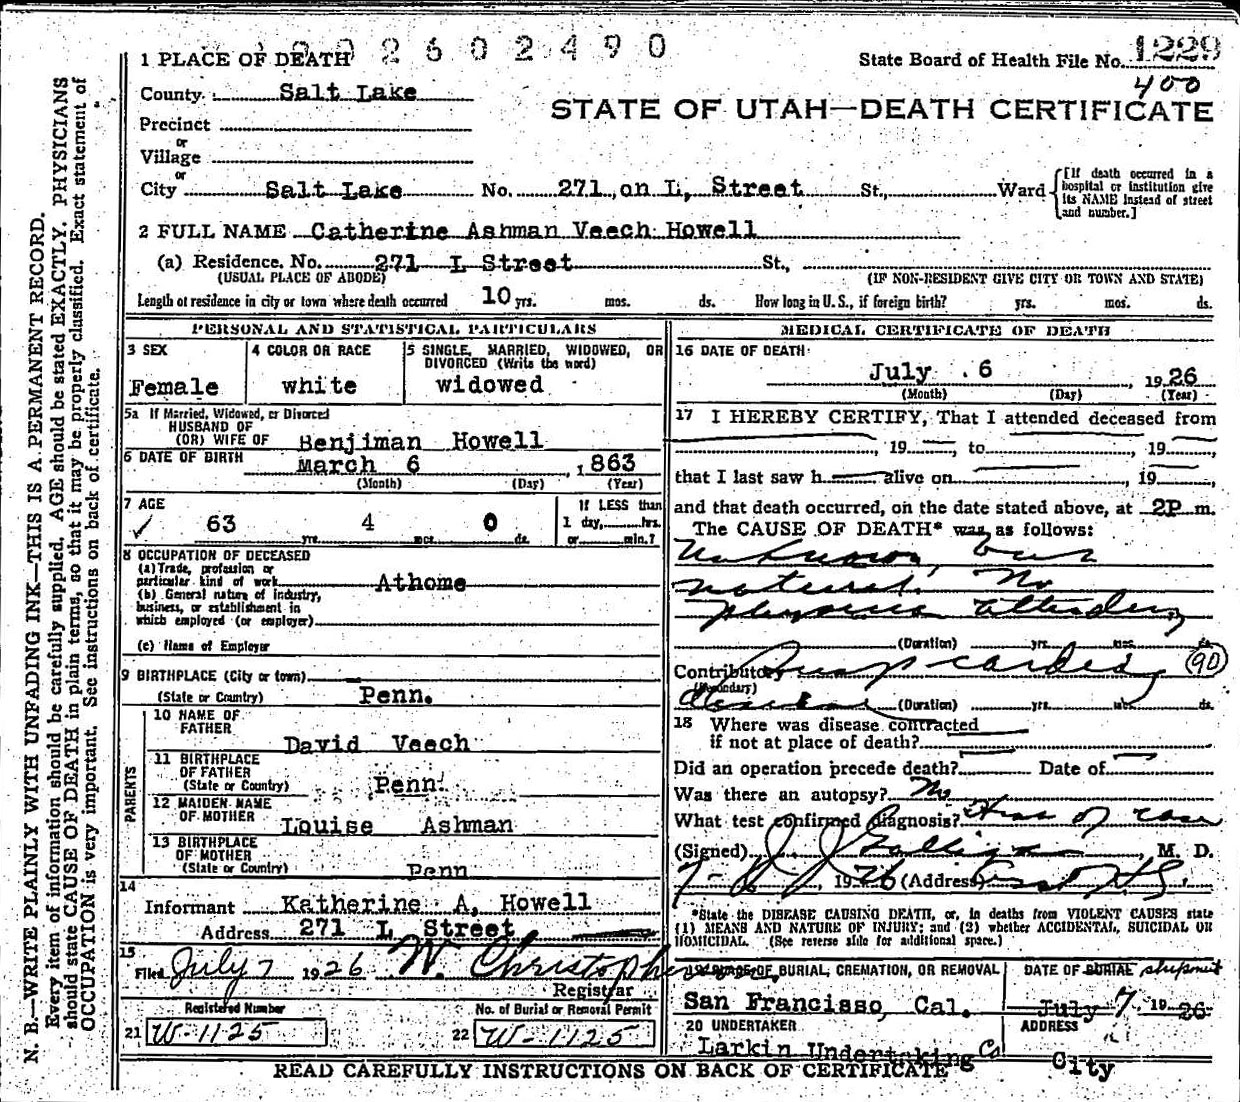 0 0 2 6 0 2 4 9 0
1 PLACE OF DEATH
State Board of Health File No. 1229
400
County Salt Lake
STATE OF UTAH—DEATH CERTIFICATE
Precinct
or
Village
or
City Salt Lake No. 271 on L, Street St., Ward
[If death occurred in a hospital or institution give its NAME instead of street and number.]
2 FULL NAME Catherine Ashman Veech Howell
(a) Residence. No. 271 L Street St.,
(USUAL PLACE OF ABODE) (IF NON-RESIDENT GIVE CITY OR TOWN AND STATE)
Length of residence in city or town where death occurred 10 yrs. mos. ds. How long in U. S., if foreign birth? yrs. mos. ds.
PERSONAL AND STATISTICAL PARTICULARS
3 SEX
Female
4 COLOR OR RACE
white
5 SINGLE, MARRIED, WIDOWED, OR
DIVORCED (Write the word)
widowed
5a If Married, Widowed, or Divorced
HUSBAND OF
(OR) WIFE OF Benjiman Howell
6 DATE OF BIRTH March 6, 1863
(Month) (Day) (Year)
7 AGE
63 yrs. 4 mos. 0 ds.
If LESS than
1 day, hrs.
or min.?
8 OCCUPATION OF DECEASED
(a) Trade, profession or
particular kind of work Athome
(b) General nature of industry,
business, or establishment in
which employed (or employer)
(c) Name of Employer
9 BIRTHPLACE (City or town)
(State or Country) Penn.
PARENTS
10 NAME OF
FATHER
David Veech
11 BIRTHPLACE
OF FATHER
(State or Country) Penn.
12 MAIDEN NAME
OF MOTHER
Louise Ashman
13 BIRTHPLACE
OF MOTHER
(State or Country) Penn
14
Informant Katherine A, Howell
Address 271 L Street
15
Filed July 7 1926 W. Christopherson
Registrar
Registered Number
21 W-1125
No. of Burial or Removal Permit
22 W-1125
MEDICAL CERTIFICATE OF DEATH
16 DATE OF DEATH
July 6, 1926
(Month) (Day) (Year)
17 I HEREBY CERTIFY, That I attended deceased from
, 19 to , 19 ,
that I last saw h alive on , 19 ,
and that death occurred, on the date stated above, at 2P m.
The CAUSE OF DEATH* was as follows:
Unknown, but
natural. No
physician attending
(Duration) yrs. mos. ds.
Contributory cardiac 90
(Secondary)
(Duration) yrs. mos. ds.
18 Where was disease contracted
if not at place of death?
Did an operation precede death? Date of
Was there an autopsy? No
What test confirmed diagnosis? Hist of case
(Signed) J. J. Galligan, M. D.
7- 1926 (Address)
*State the DISEASE CAUSING DEATH, or, in deaths from VIOLENT CAUSES state
(1) MEANS AND NATURE OF INJURY; and (2) whether ACCIDENTAL, SUICIDAL OR
HOMICIDAL. (See reverse side for additional space.)
19 PLACE OF BURIAL, CREMATION, OR REMOVAL
San Francisso, Cal.
DATE OF BURIAL shipment
July 7 1926
20 UNDERTAKER
Larkin Undertaking Co
ADDRESS
City
READ CAREFULLY INSTRUCTIONS ON BACK OF CERTIFICATE
N. B.—WRITE PLAINLY WITH UNFADING INK—THIS IS A PERMANENT RECORD.
Every item of information should be carefully supplied. AGE should be stated EXACTLY. PHYSICIANS
should state CAUSE OF DEATH in plain terms, so that it may be properly classified. Exact statement of
OCCUPATION is very important. See instructions on back of certificate.